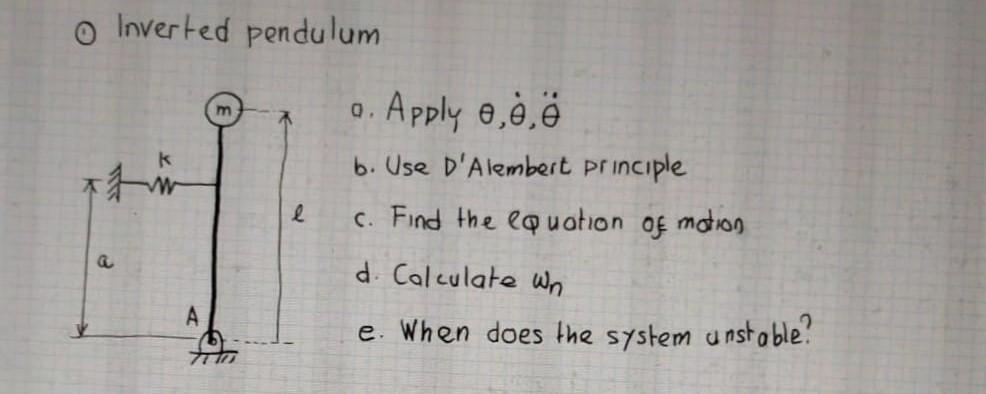 ① Inverted pendulum
m
a. Apply θ, θ̇, θ̈
k
b. Use D'Alembert principle
l
c. Find the equation of motion
a
d. Calculate ωn
A
e. When does the system unstable?